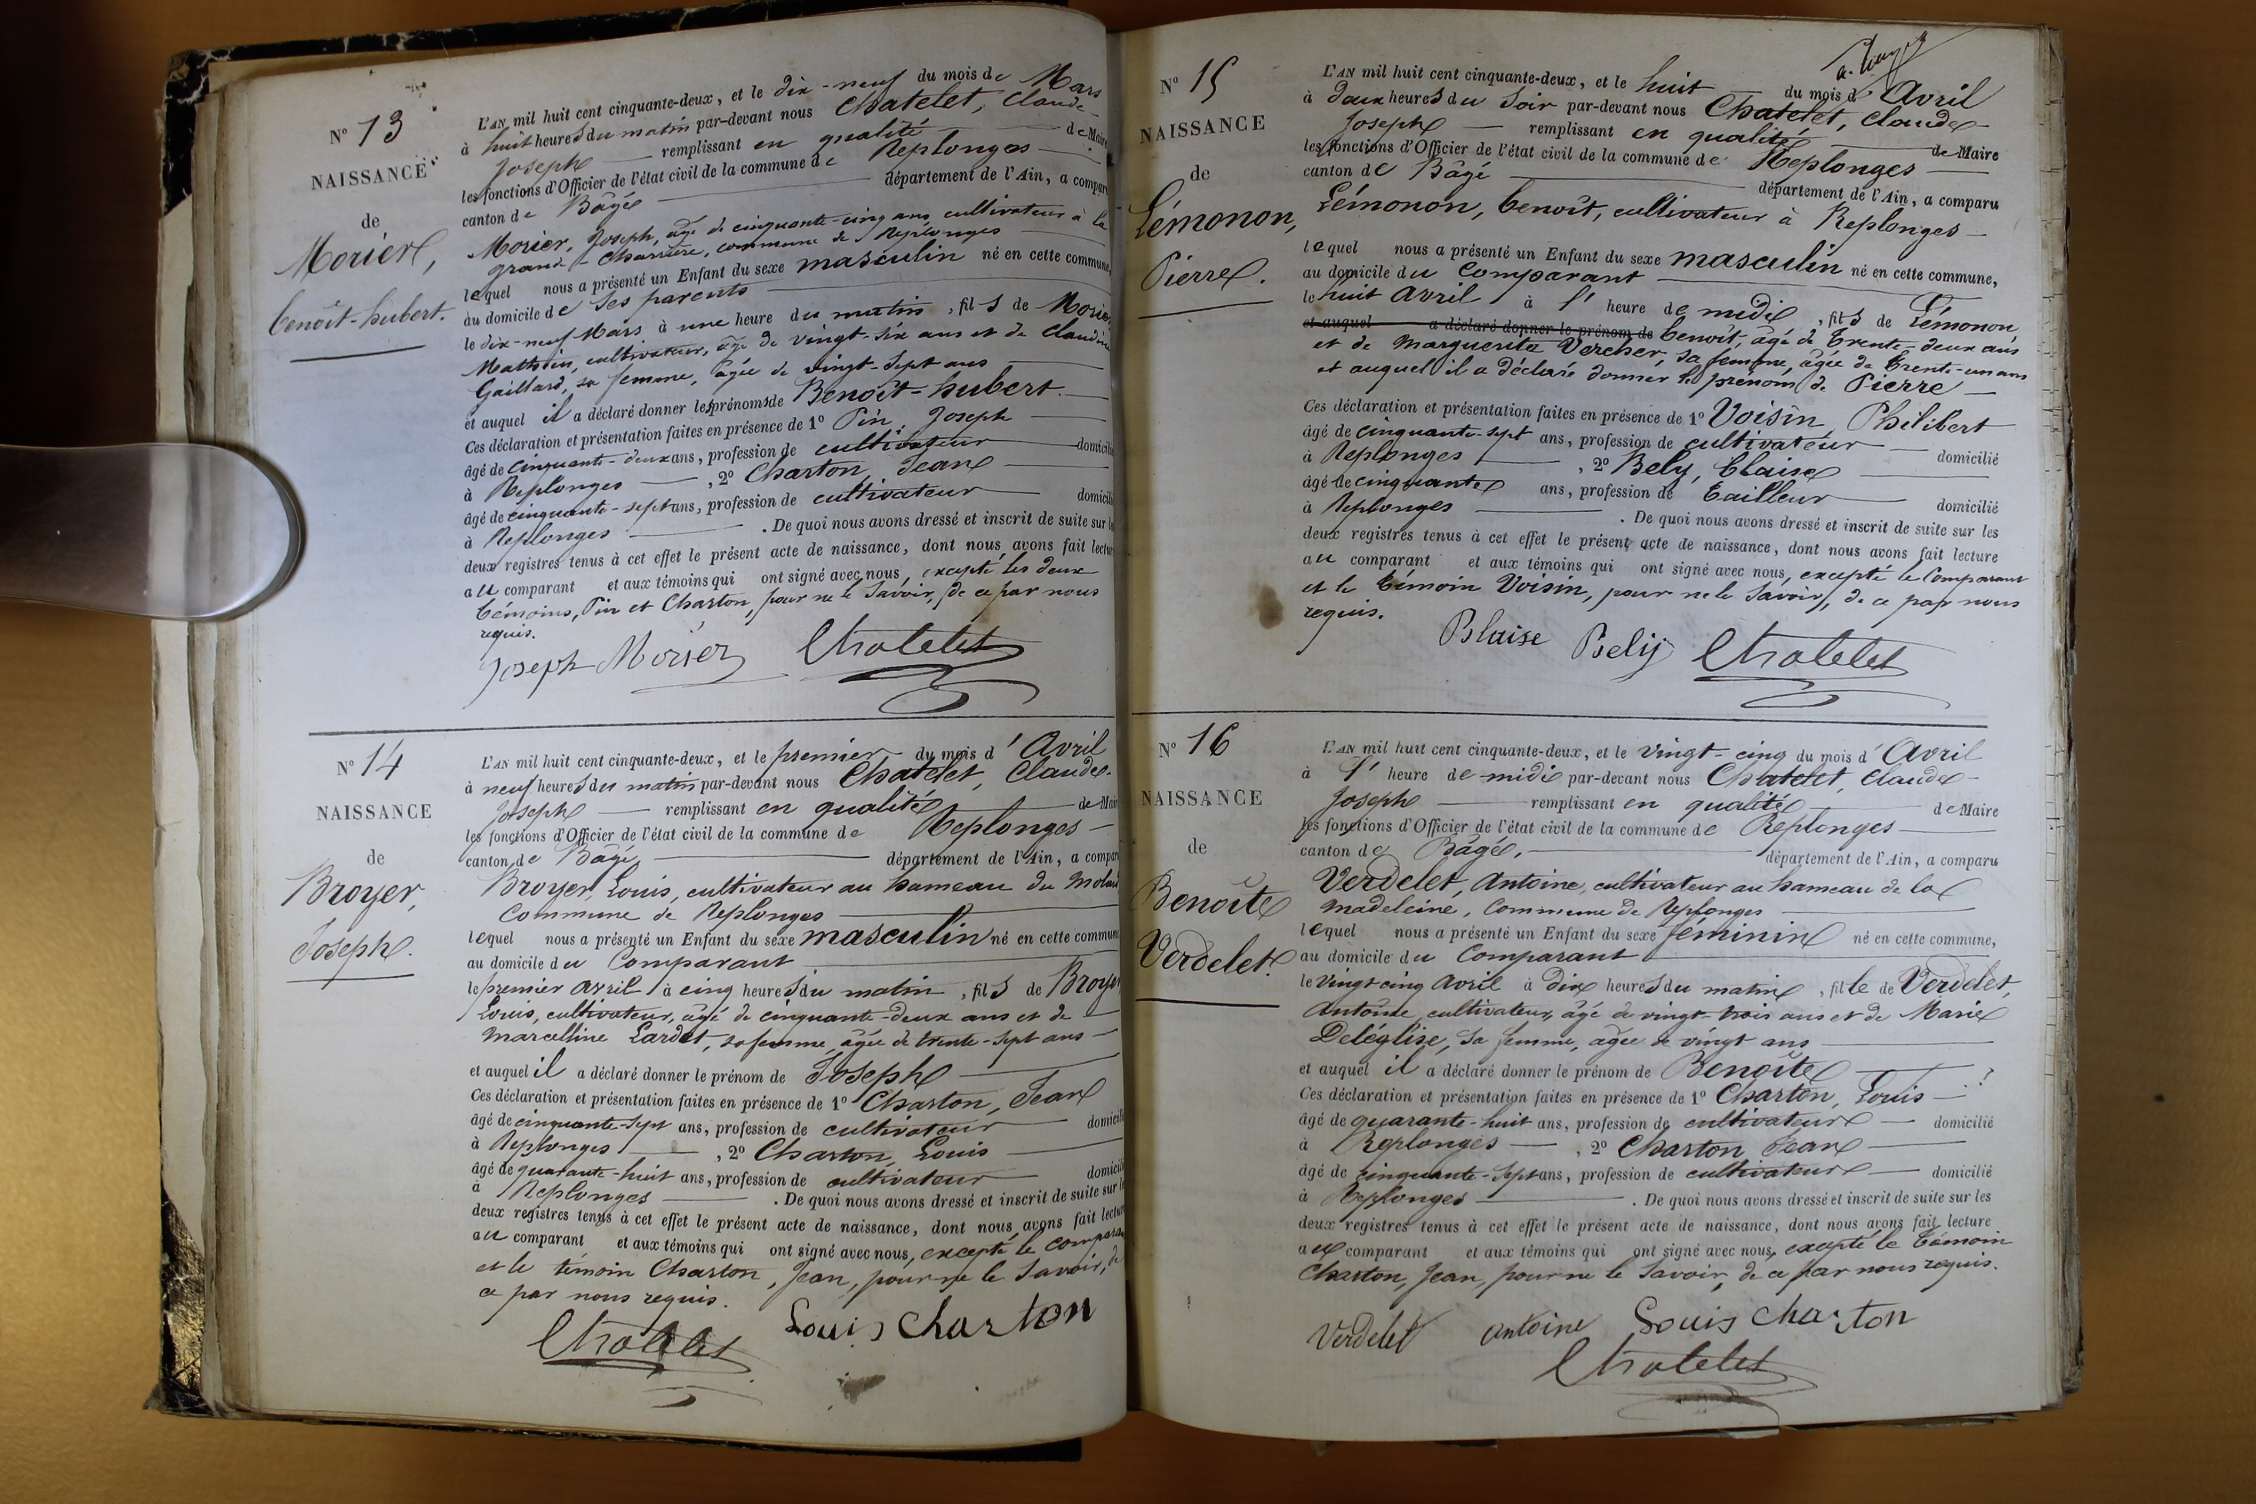 N° 13
NAISSANCE
de
Morier,
benoît-hubert.
L'AN mil huit cent cinquante-deux, et le dix-neuf du mois de Mars
à huit heures du matin par-devant nous Chatelet, Claude
Joseph remplissant en qualité de Maire
les fonctions d'Officier de l'état civil de la commune de Replonges
canton de Bâgé département de l'Ain, a comparu
Morier, Joseph, âgé de cinquante-cinq ans, cultivateur à la
grande Charrière, commune de Replonges
lequel nous a présenté un Enfant du sexe masculin né en cette commune,
au domicile de ses parents
le dix-neuf Mars à une heure du matin, fils de Morier
Mathieu, cultivateur, âgé de vingt-six ans et de Claudine
Gaillard, sa femme, âgée de vingt-sept ans
et auquel il a déclaré donner les prénoms de Benoît-hubert.
Ces déclaration et présentation faites en présence de 1° Pin, Joseph
âgé de cinquante-deux ans, profession de cultivateur domicilié
à Replonges, 2° Charton, Jean
âgé de cinquante-sept ans, profession de cultivateur domicilié
à Replonges. De quoi nous avons dressé et inscrit de suite sur les
deux registres tenus à cet effet le présent acte de naissance, dont nous avons fait lecture
au comparant et aux témoins qui ont signé avec nous, excepté les deux
témoins, Pin et Charton, pour ne le Savoir, de ce par nous
requis.
Joseph Morier Chatelet
N° 14
NAISSANCE
de
Broyer,
Joseph.
L'AN mil huit cent cinquante-deux, et le premier du mois d'Avril
à neuf heures du matin par-devant nous Chatelet, Claude-
Joseph remplissant en qualité de Maire
les fonctions d'Officier de l'état civil de la commune de Replonges
canton de Bâgé département de l'Ain, a comparu
Broyer, Louis, cultivateur au hameau du Molard
Commune de Replonges
lequel nous a présenté un Enfant du sexe masculin né en cette commune
au domicile du Comparant
le premier avril à cinq heures du matin, fils de Broyer
Louis, cultivateur, âgé de cinquante-deux ans et de
Marcelline Lardet, sa femme, âgée de trente-sept ans
et auquel il a déclaré donner le prénom de Joseph
Ces déclaration et présentation faites en présence de 1° Charton, Jean
âgé de cinquante-sept ans, profession de cultivateur domicilié
à Replonges, 2° Charton, Louis
âgé de quarante-huit ans, profession de cultivateur domicilié
à Replonges. De quoi nous avons dressé et inscrit de suite sur les
deux registres tenus à cet effet le présent acte de naissance, dont nous avons fait lecture
au comparant et aux témoins qui ont signé avec nous, excepté le comparant
et le témoin Charton, Jean, pour ne le Savoir, de
ce par nous requis.
Chatelet Louis Charton
N° 15
NAISSANCE
de
Lémonon,
Pierre.
L'AN mil huit cent cinquante-deux, et le huit du mois d'Avril
à deux heures du Soir par-devant nous Chatelet, Claude
Joseph remplissant en qualité de Maire
les fonctions d'Officier de l'état civil de la commune de Replonges
canton de Bâgé département de l'Ain, a comparu
Lémonon, benoît, cultivateur à Replonges
lequel nous a présenté un Enfant du sexe masculin né en cette commune,
au domicile du Comparant
le huit Avril à l'heure de midi, fils de Lémonon
et auquel a déclaré donner le prénom de benoît, âgé de trente-deux ans
et de Marguerite Vercher, sa femme, âgée de trente-un ans
et auquel il a déclaré donner le prénom de Pierre
Ces déclaration et présentation faites en présence de 1° Voisin, Philibert
âgé de cinquante-sept ans, profession de cultivateur domicilié
à Replonges, 2° Bely, blaise
âgé de cinquante ans, profession de tailleur domicilié
à Replonges. De quoi nous avons dressé et inscrit de suite sur les
deux registres tenus à cet effet le présent acte de naissance, dont nous avons fait lecture
au comparant et aux témoins qui ont signé avec nous, excepté le Comparant
et le témoin Voisin, pour ne le Savoir, de ce par nous
requis.
Blaise Bely Chatelet
N° 16
NAISSANCE
de
Benoîte
Verdelet.
L'AN mil huit cent cinquante-deux, et le vingt-cinq du mois d'Avril
à l'heure de midi par-devant nous Chatelet, Claude
Joseph remplissant en qualité de Maire
les fonctions d'Officier de l'état civil de la commune de Replonges
canton de Bâgé, département de l'Ain, a comparu
Verdelet, Antoine, cultivateur au hameau de la
Madeleine, Commune de Replonges
lequel nous a présenté un Enfant du sexe féminin né en cette commune,
au domicile du Comparant
le vingt cinq Avril à dix heures du matin, fille de Verdelet,
Antoine, cultivateur, âgé de vingt-trois ans et de Marie
Deléglise, sa femme, âgée de vingt ans
et auquel il a déclaré donner le prénom de Benoîte
Ces déclaration et présentation faites en présence de 1° Charton, Louis
âgé de quarante-huit ans, profession de cultivateur domicilié
à Replonges, 2° Charton, Jean
âgé de cinquante-sept ans, profession de cultivateur domicilié
à Replonges. De quoi nous avons dressé et inscrit de suite sur les
deux registres tenus à cet effet le présent acte de naissance, dont nous avons fait lecture
au comparant et aux témoins qui ont signé avec nous, excepté le témoin
Charton, Jean, pour ne le Savoir, de ce par nous requis.
Verdelet antoine Louis Charton
Chatelet